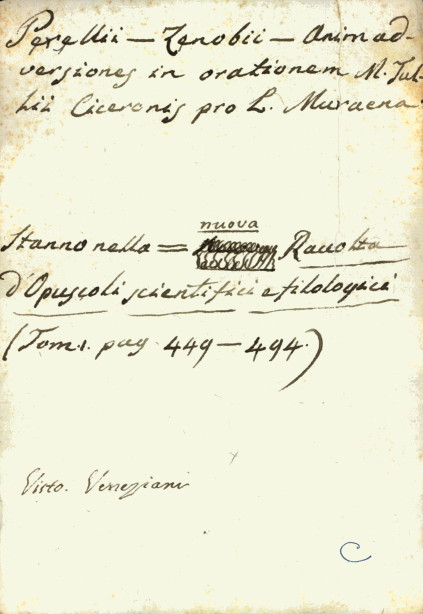 Perellii — Zenobii — Animad-
versiones in orationem M. Tul-
lii Ciceronis pro L. Muraena
nuova
Stanno nella = Raccolta
d'Opuscoli scientifici e filologici
(Tom. 1. pag 449 — 494.)
Visto. Veneziani
C